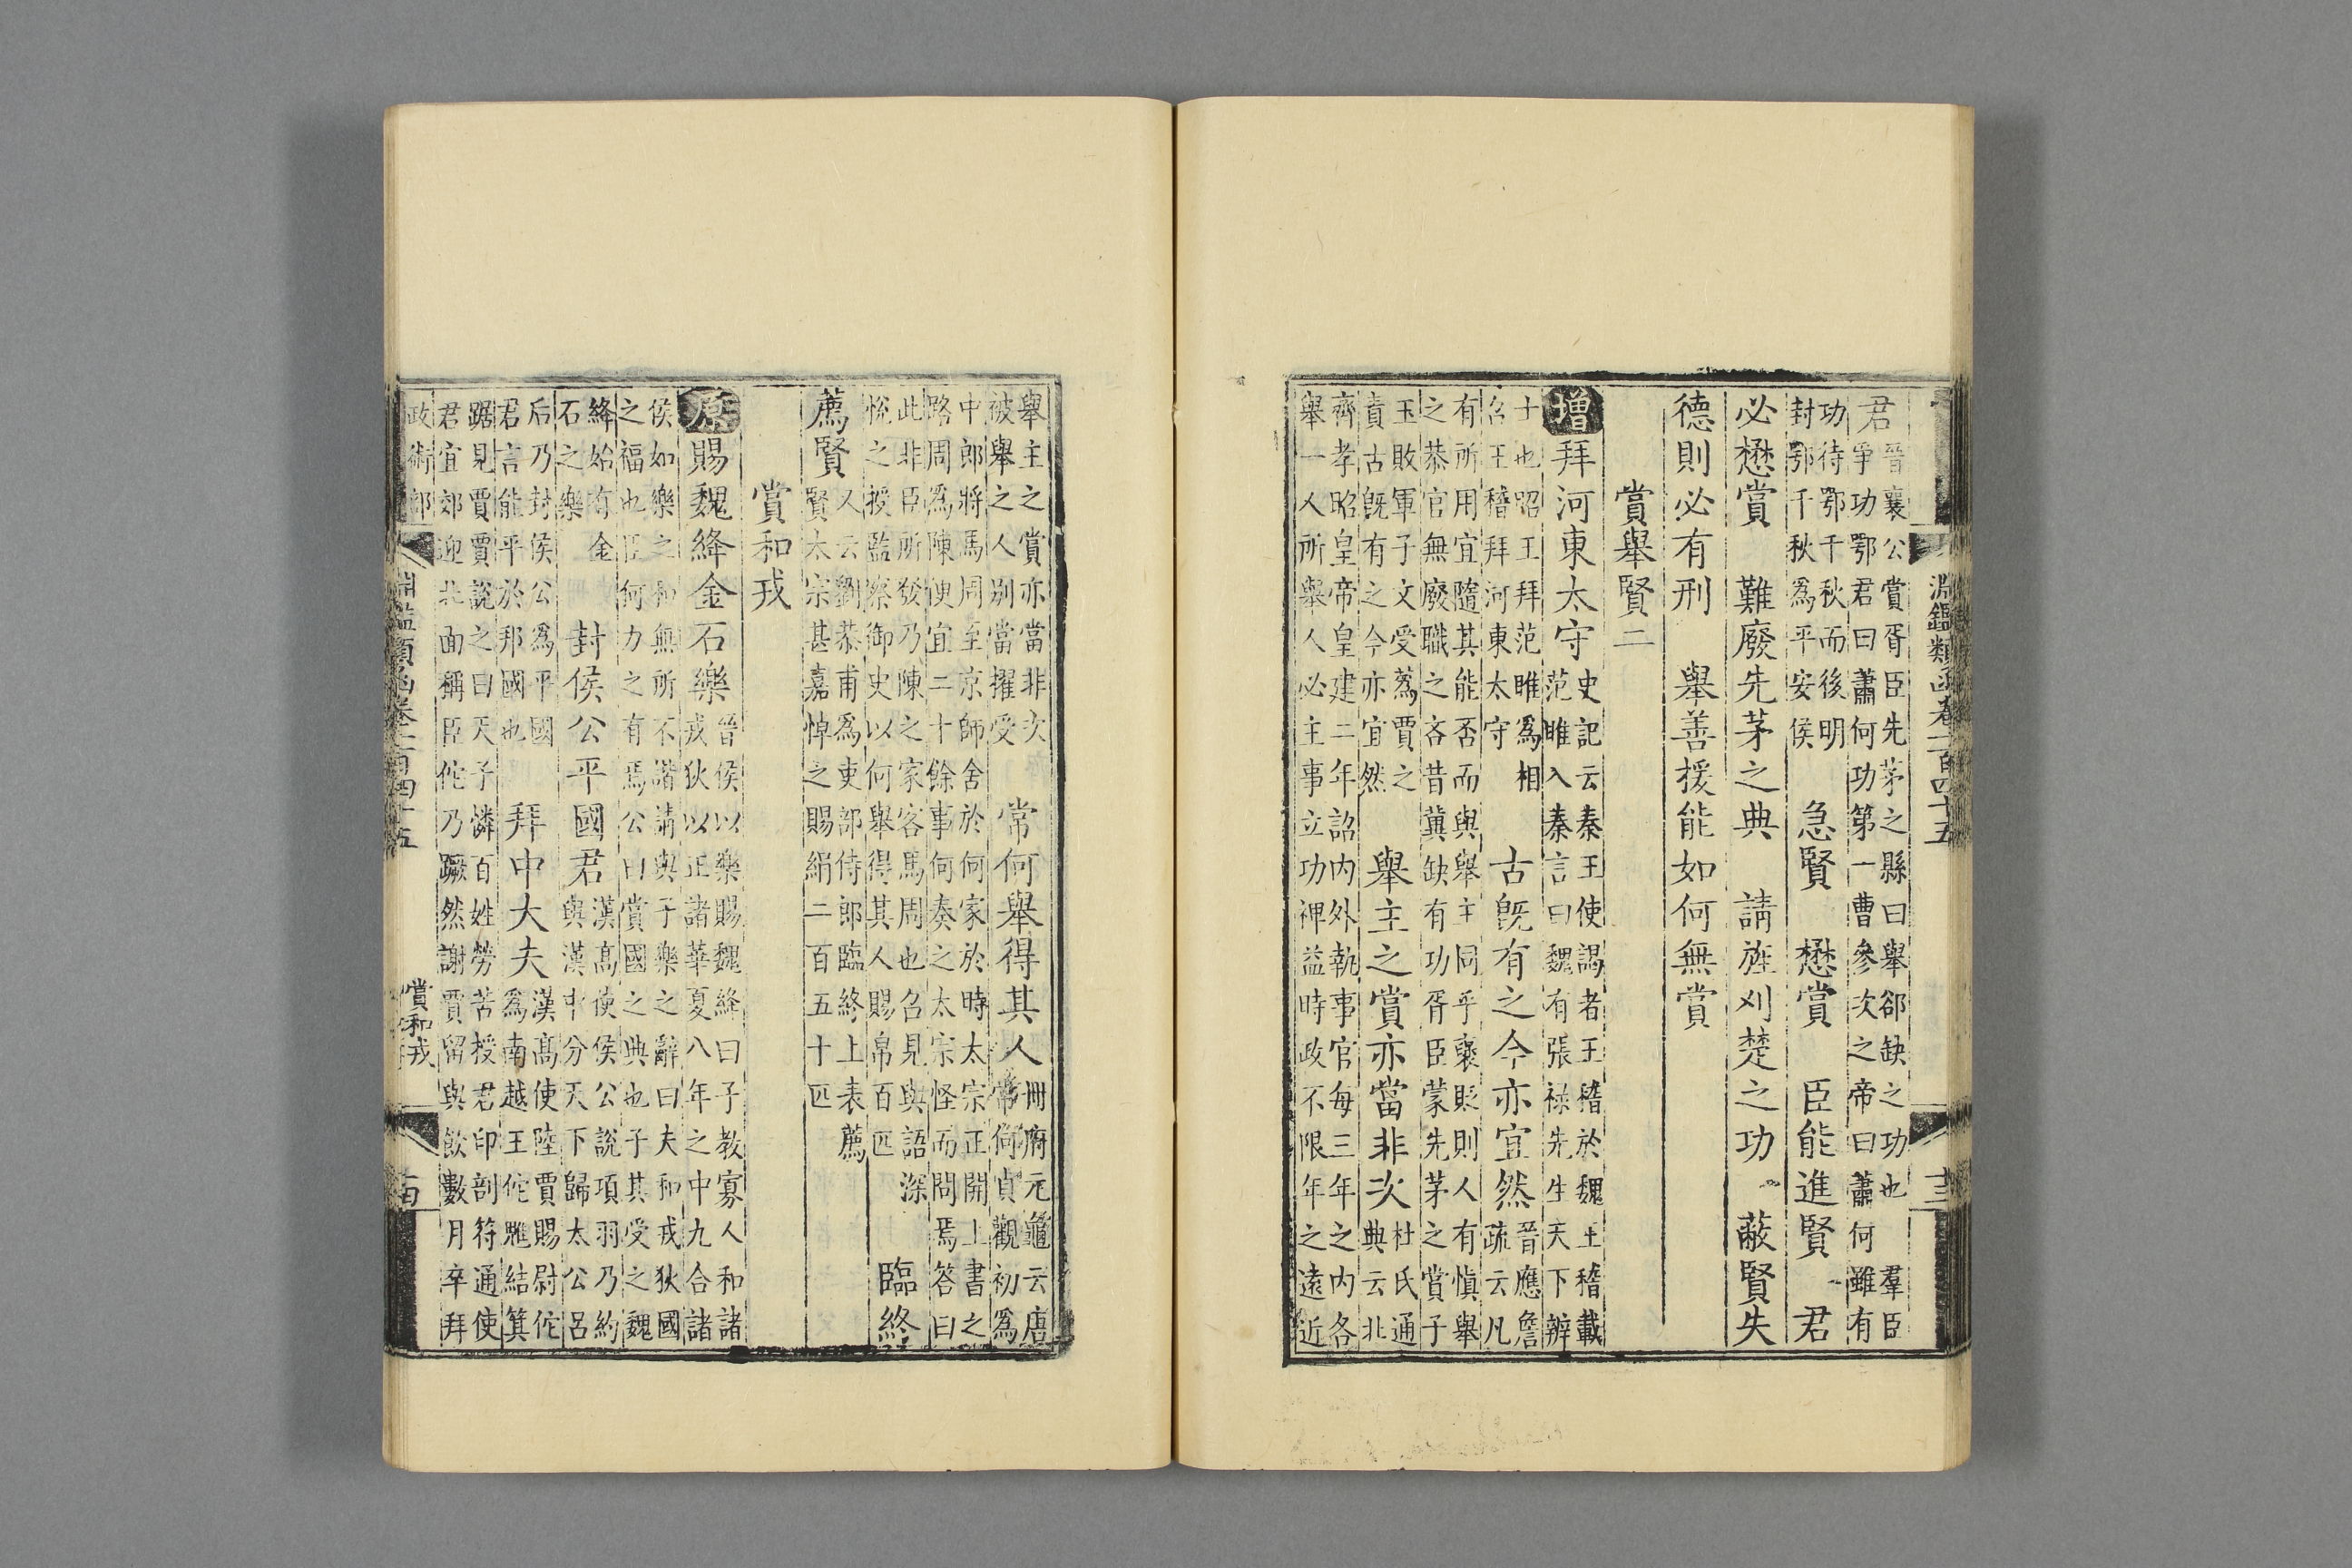 淵鑑類函卷二百四十五 十三
君
晉襄公賞胥臣先茅之縣曰舉郤缺之功也 羣臣
爭功鄂君曰蕭何功第一曹參次之帝曰蕭何雖有
功待鄂千秋而後明
封鄂千秋爲平安侯
急賢 懋賞 臣能進賢 君
必懋賞 難廢先茅之典 請旌刈楚之功 蔽賢失
德則必有刑 舉善援能如何無賞
賞舉賢二
增拜河東太守
史記云秦王使謁者王稽於魏王稽載
范雎入秦言曰魏有張祿先生天下辨
士也昭王拜范雎爲相
召王稽拜河東太守
古旣有之今亦宜然
晉應詹
疏云凡
有所用宜隨其能否而與舉主同乎襃貶則人有愼舉
之恭官無廢職之吝昔冀缺有功胥臣蒙先茅之賞子
玉敗軍子文受蒍賈之
責古旣有之今亦宜然
舉主之賞亦當非次
杜氏通
典云北
齊孝昭皇帝皇建二年詔内外執事官每三年之内各
舉一人所舉人必主事立功裨益時政不限年之遠近
舉主之賞亦當非次
被舉之人別當擢受
常何舉得其人
冊府元龜云唐
常何貞觀初爲
中郎將馬周至京師舍於何家於時太宗正開上書之
路周爲陳便宜二十餘事何奏之太宗怪而問焉答曰
此非臣所發乃陳之家客馬周也召見與語深
悅之授監察御史以何舉得其人賜帛百匹
臨終
薦賢
又云劉恭甫爲吏部侍郎臨終上表薦
賢太宗甚嘉悼之賜絹二百五十匹
賞和戎
原賜魏絳金石樂
晉侯以樂賜魏絳曰子教寡人和諸
戎狄以正諸華夏八年之中九合諸
侯如樂之和無所不諧請與子樂之辭曰夫和戎狄國
之福也臣何力之有焉公曰賞國之典也子其受之魏
絳始有金
石之樂
封侯公平國君
漢高使侯公說項羽乃約
與漢中分天下歸太公呂
后乃封侯公爲平國
君言能平於邦國也
拜中大夫
漢高使陸賈賜尉佗
爲南越王佗魋結箕
踞見賈賈說之曰天子憐百姓勞苦授君印剖符通使
君宜郊迎北面稱臣佗乃蹶然謝賈留與飲數月卒拜
政術部 淵鑑類函卷二百四十五 賞和戎